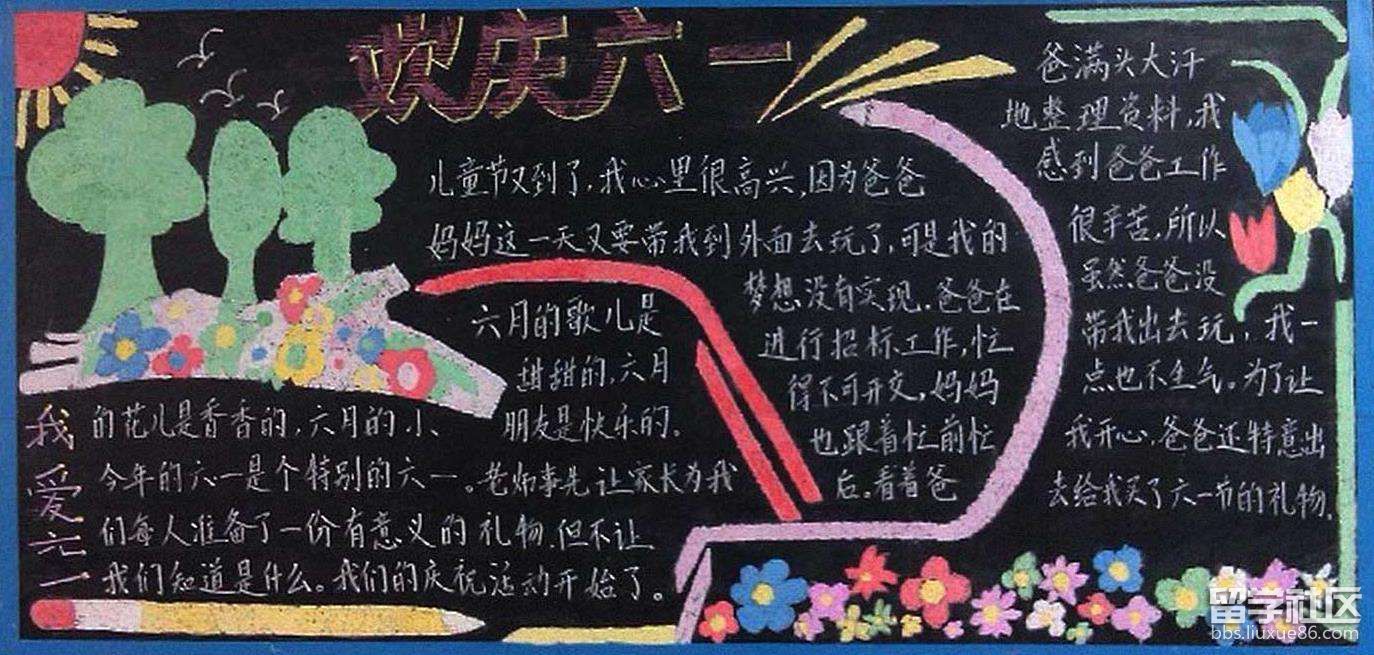 欢庆六一
儿童节又到了,我心里很高兴,因为爸爸
妈妈这一天又要带我到外面去玩了,可是我的
梦想没有实现.爸爸在
进行招标工作,忙
得不可开交,妈妈
也跟着忙前忙
后.看着爸
爸满头大汗
地整理资料,我
感到爸爸工作
很辛苦.所以
虽然爸爸没
带我出去玩,我一
点也不生气。为了让
我开心.爸爸还特意出
去给我买了六一节的礼物.
我爱六一
六月的歌儿是
甜甜的,六月
的花儿是香香的,六月的小、朋友是快乐的。
今年的六一是个特别的六一。老师事先让家长为我
们每人准备了一份有意义的礼物.但不让
我们知道是什么。我们的庆祝活动开始了。
留学社区
bbs.liuxue86.com